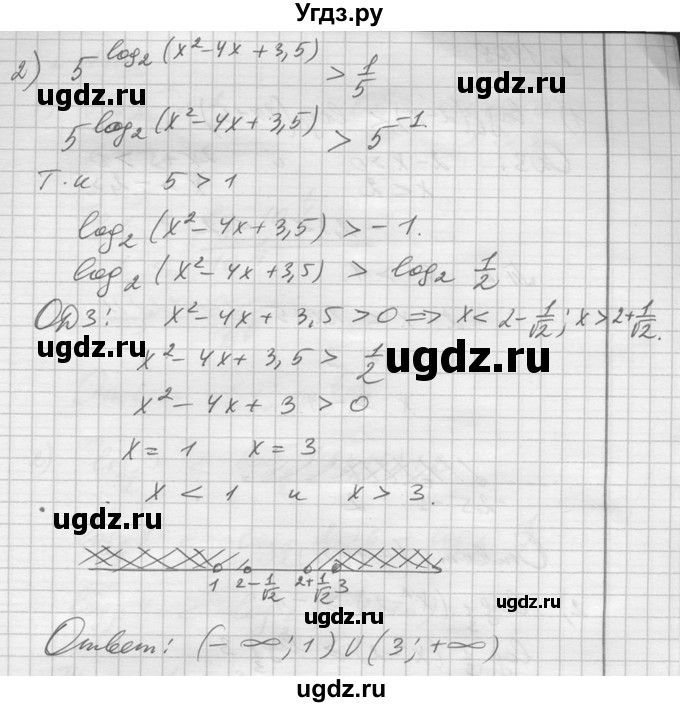 Угдз.ру
2) 5^(log₂(x²-4x+3,5)) > 1/5
ugdz.ru ugdz.ru
5^(log₂(x²-4x+3,5)) > 5^(-1).
т.к 5 > 1
log₂(x²-4x+3,5) > -1.
log₂(x²-4x+3,5) > log₂ 1/2
ОДЗ: x²-4x+3,5>0 => x<2-1/√2; x>2+1/√2.
x²-4x+3,5 > 1/2
ugdz.ru
x²-4x+3 > 0
x=1 x=3
x < 1 и x > 3.
ugdz.ru
1 2-1/√2 2+1/√2 3
ugdz.ru
Ответ: (-∞;1)∪(3;+∞)
ugdz.ru ugdz.ru
ugdz.ru